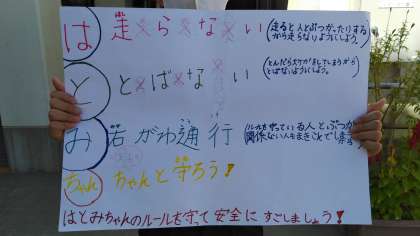 は 走らない
(走ると人とぶつかったりする
から走らないようにしよう。)
と とばない
(とんだら大ケガをしてしまうから
とばないようにしよう。)
み 右がわ通行
(ルールを守っている人とぶつかり
関係ない人もまきこんでしまう
から
ちゃん ちゃんと守ろう!
はとみちゃんのルールを守て安全にすごしましょう!